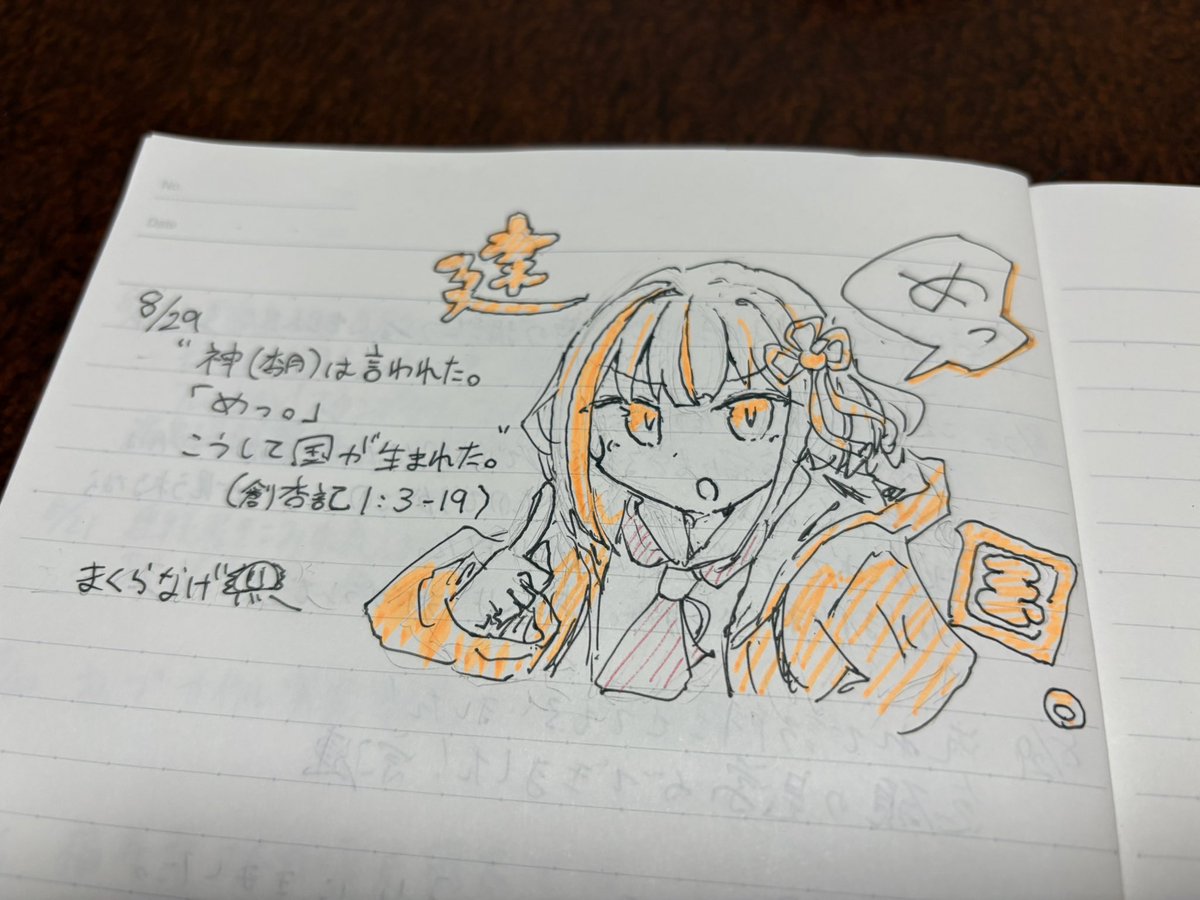 No.
Date
建
めっ
8/29
"神()は言われた。
「めっ。」
こうして国が生まれた。"
(創杏記1:3-19)
まくらなげ
国